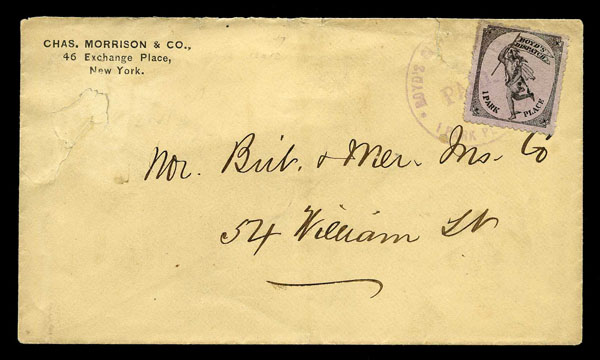 CHAS. MORRISON & CO.,
46 Exchange Place,
New York.
BOYD'S
PA
1 PARK P
BOYD'S
DISPATCH
1 PARK PLACE
Nor. Brit. & Mer. Ins. Co
54 William St